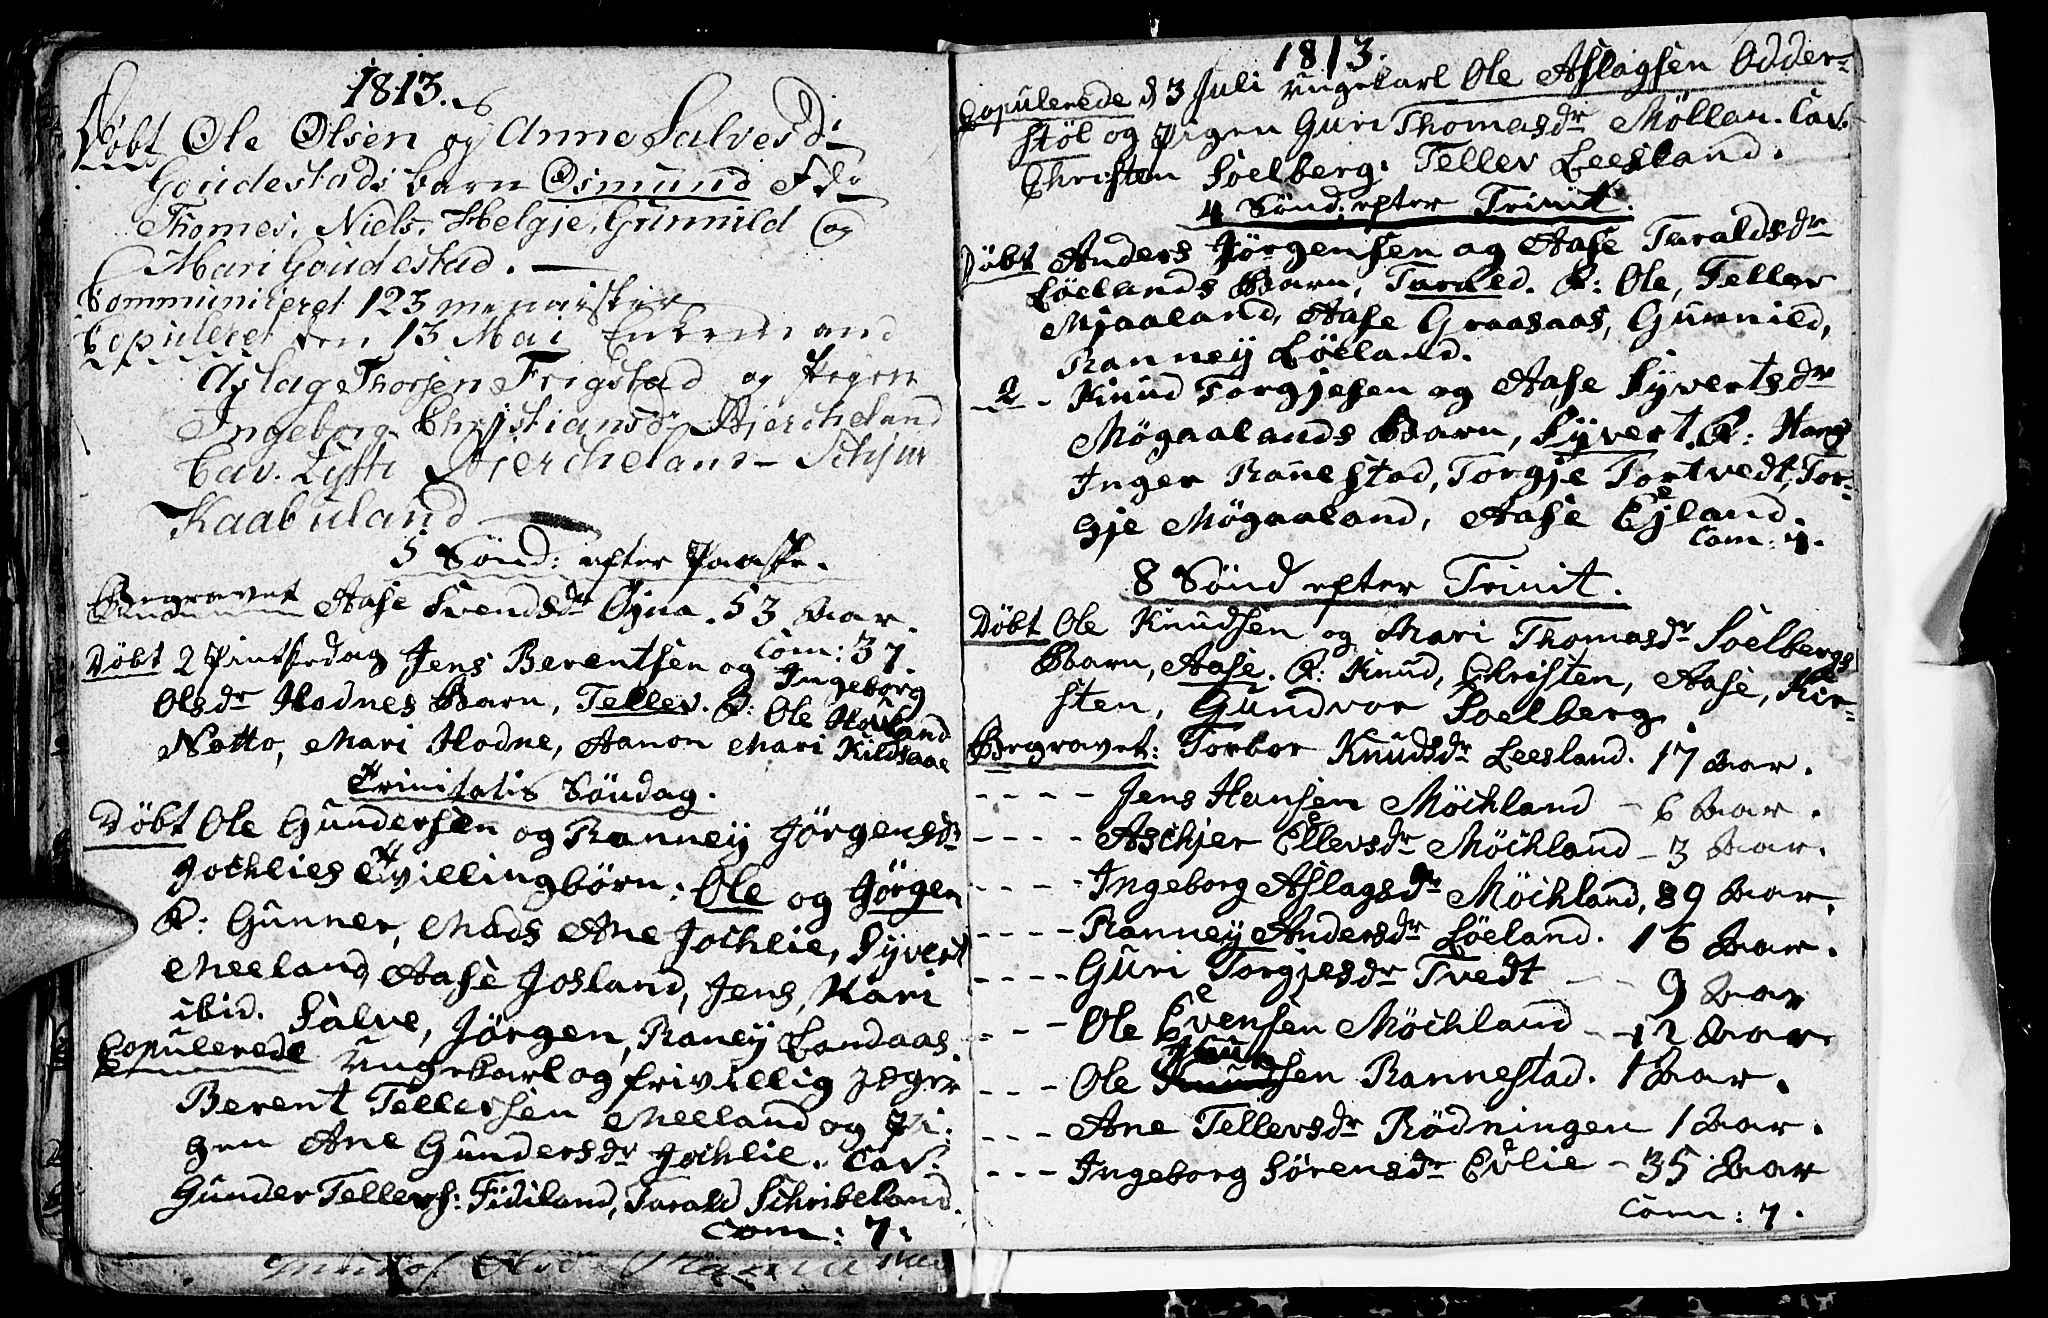 1813.
Döbt Ole Olsen og Anne Salvesd:
Goudestads barn Osmund Fd:
Thomes, Niels, Helgje, Gunnild og
Mari Goudestad.
Communiceret 123 mennisker
Copuleret den 13 Mai Enkemand
Aslag Thorsen Frigstad og Pigen
Ingeborg Christiansd: Bjercheland
Cav. Bjercheland
Kaabuland
5 Sönd: efter Paaske.
Begravet Aase Svendsdr Öÿna. 53 Aar.
Com: 37.
Döbt 2 Pintsedag Jens Berentsen og Ingeborg
Olsdr Hodnes Barn, Tellev. F: Ole Haaland
Netto, Mari Hodne, Aanon Mari Kildsaae
Trinitatis Söndag.
Döbt Ole Gundersen og Ranneÿ Jörgensdr
Jochlies tvillingbörn: Ole og Jörgen
F: Gunner, Mads Ane Jochlie, Syvert
Meeland, Aase Josland, Jens, Kari
ibid. Salve, Jörgen, Raneÿ Eandaas.
Copulerede Ungekarl og frivillig Jeger
Berent Tellefsen Meeland og Pi-
gen Ane Gundersdr Jochlie. Cav:
Gunder Tellefs: Fidiland, Tarald Schribeland.
Com: 7.
1813.
Copulerede d 3 Juli Ungekarl Ole Aslagsen Odder-
stöl og Pigen Guri Thomasdr Möllan. Cav.
Christen Soelberg. Tellev Leesland.
4 Sönd: efter Trinit.
Döbt Anders Jörgensen og Aase Taraldsdr
Löelands Barn, Tarald. F: Ole, Tellev
Mjaaland, Aase Graasaas, Gunnild,
Ranneÿ Löeland.
- 2 - Knud Torgjesen og Aase Syvertsdr
Mögaalands Barn, Syvert. F: Hans
Inger Ranestad, Torgje Tortvedt, Tor-
gje Mögaaland, Aase Ejland.
Com: 4.
8 Sönd efter Trinit.
Döbt Ole Knudsen og Mari Thomasdr Soelbergs
Barn, Aase. F: Knud, Christen, Aase, Kir-
sten, Gundvor Soelberg.
Begravet: Torbor Knudsdr Leesland. 17 Aar.
- - - - Jens Hansen Möchland - 6 Aar.
- - - - Aschjer Ellevsdr Möchland - 3 Aar.
- - - - Ingeborg Aslagsdr Möchland, 89 Aar.
- - - - Ranneÿ Andersdr Löeland. 16 Aar.
- - - - Guri Torgjesdr Tvedt - - 9 Aar
- - - - Ole Evensen Möchland - - 12 Aar
- - - Ole sen Rannestad. 1 Aar.
- - - Ane Tellevsdr Rödningen 1 Aar.
- - - Ingeborg Sörensdr Evlie - 35 Aar
Com: 7.